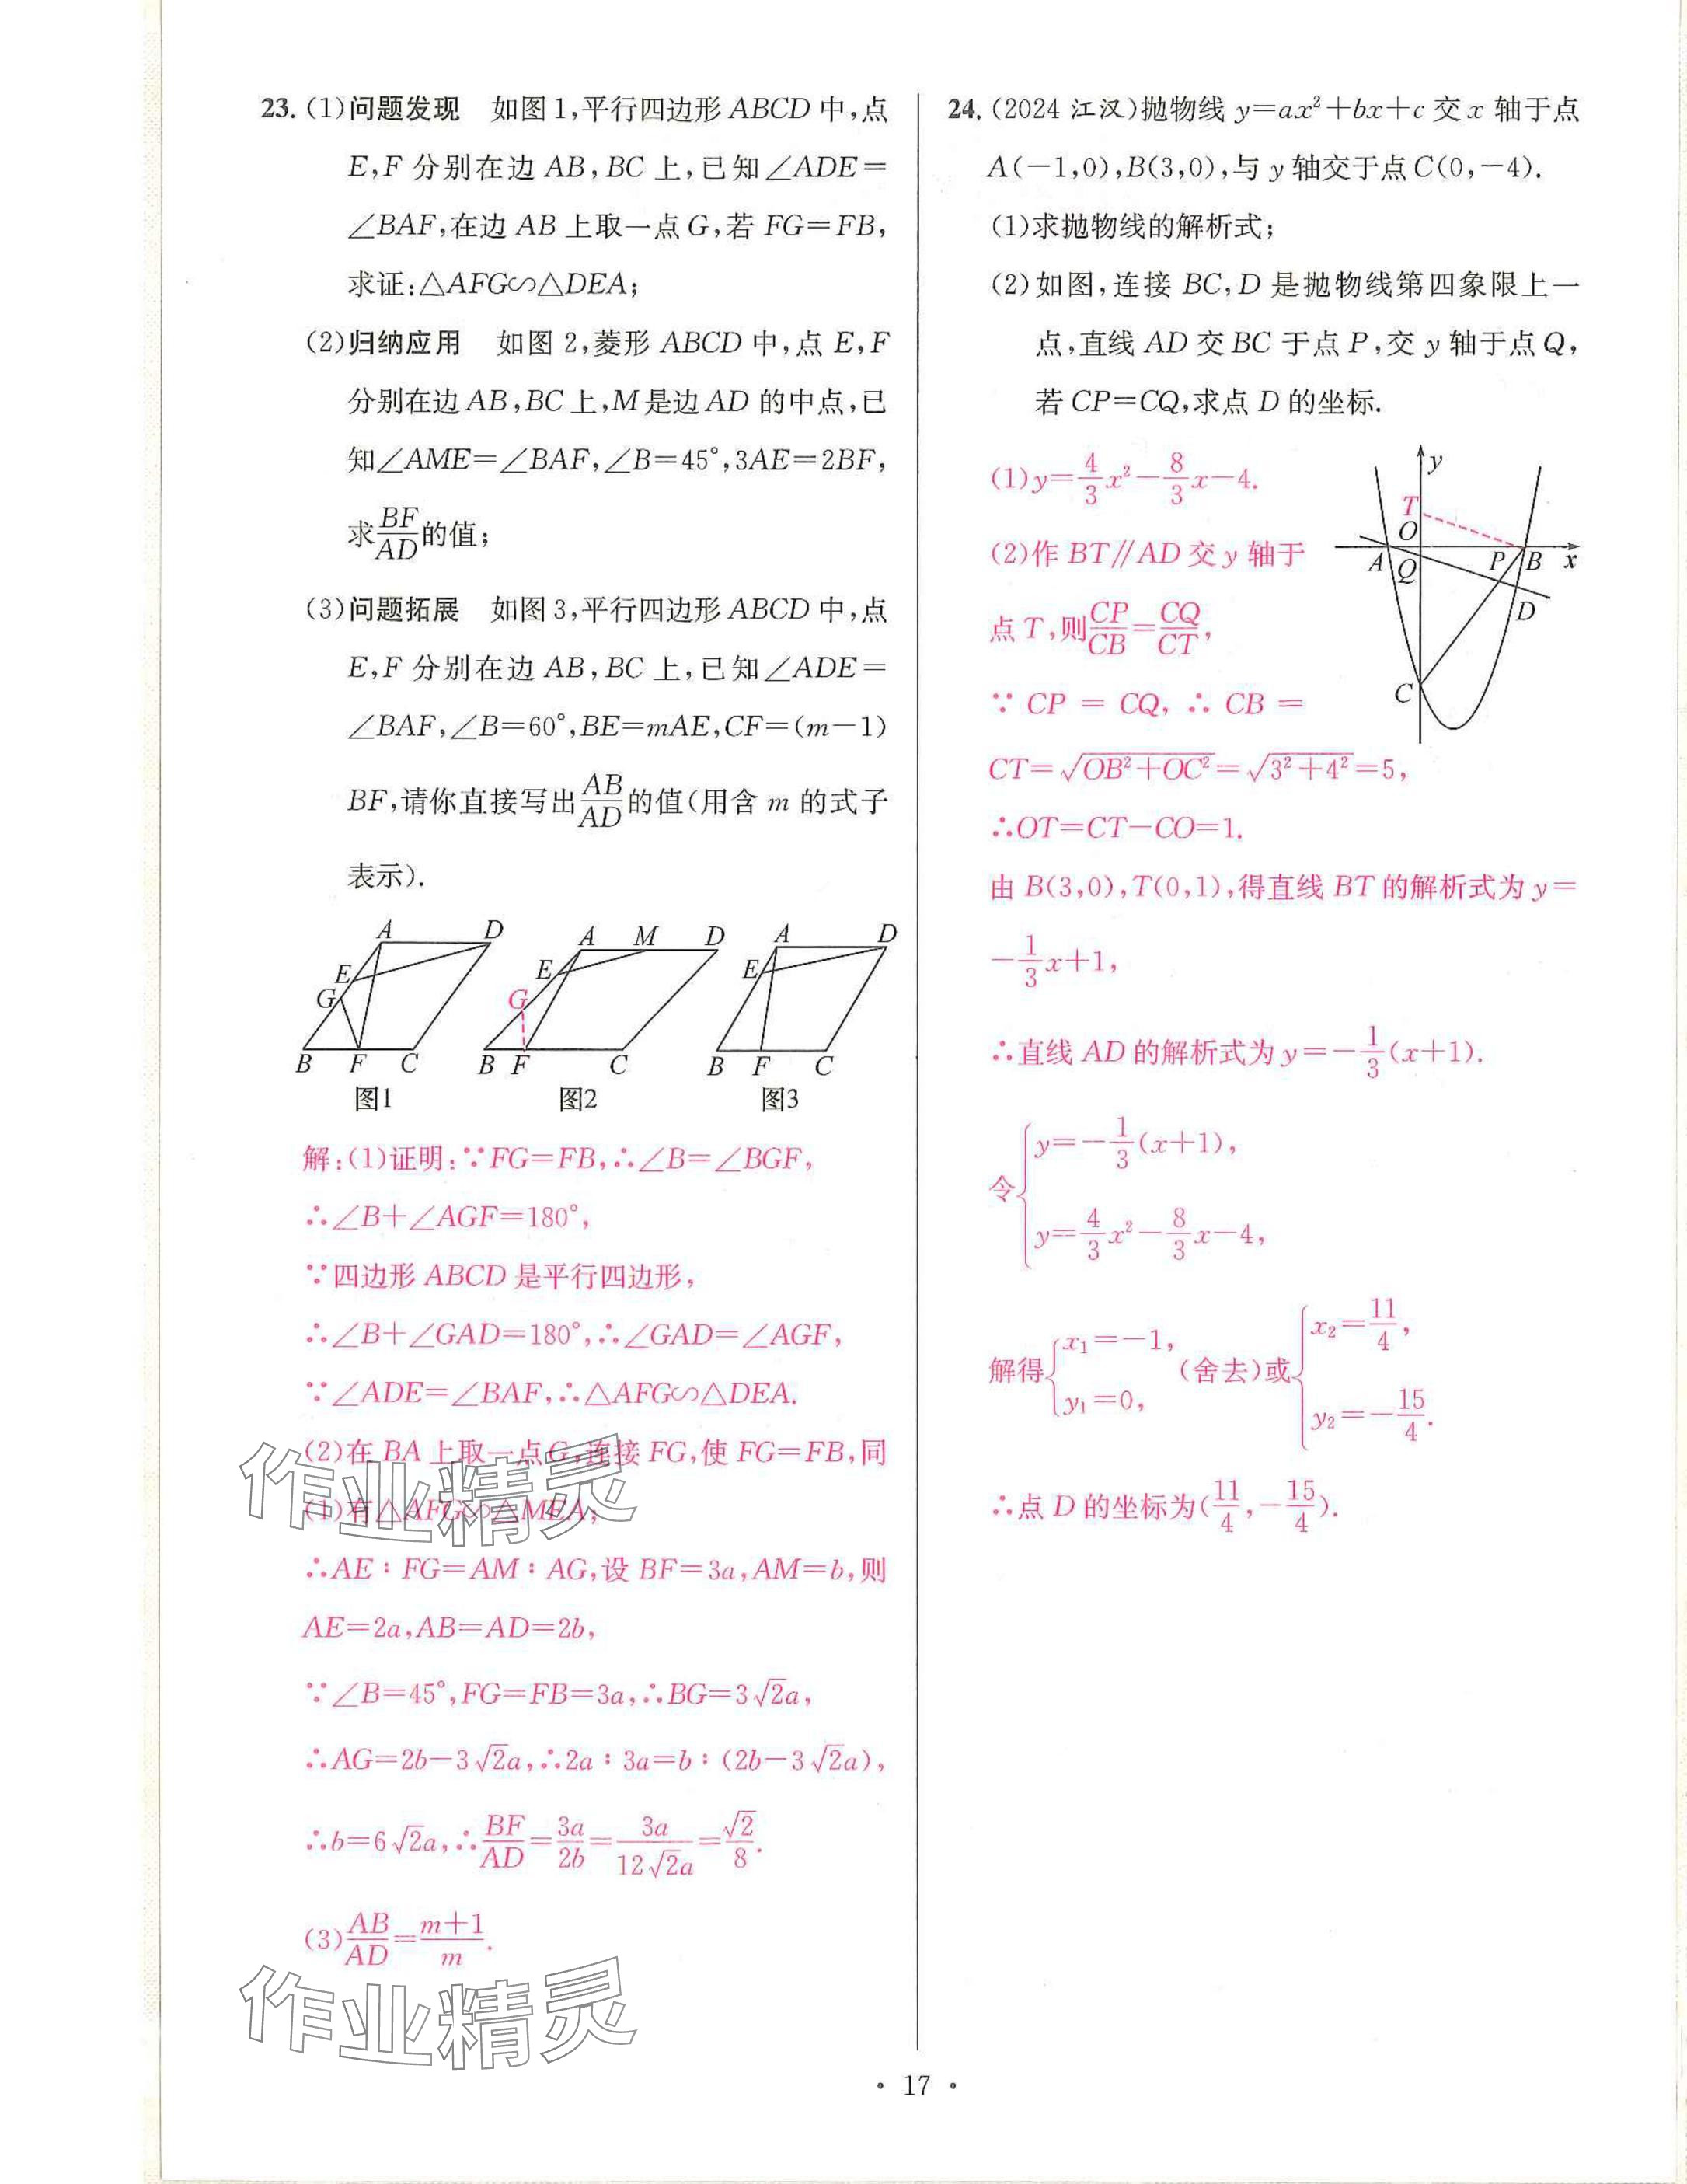 23. (1)问题发现 如图1,平行四边形ABCD中,点
E,F分别在边AB,BC上,已知∠ADE=
∠BAF,在边AB上取一点G,若FG=FB,
求证:△AFG∽△DEA;
(2)归纳应用 如图2,菱形ABCD中,点E,F
分别在边AB,BC上,M是边AD的中点,已
知∠AME=∠BAF,∠B=45°,3AE=2BF,
求BF/AD的值;
(3)问题拓展 如图3,平行四边形ABCD中,点
E,F分别在边AB,BC上,已知∠ADE=
∠BAF,∠B=60°,BE=mAE,CF=(m-1)
BF,请你直接写出AB/AD的值(用含m的式子
表示).
A D E G B F C
图1
A M D E G B F C
图2
A D E B F C
图3
解:(1)证明:∵FG=FB,∴∠B=∠BGF,
∴∠B+∠AGF=180°,
∵四边形ABCD是平行四边形,
∴∠B+∠GAD=180°,∴∠GAD=∠AGF,
∵∠ADE=∠BAF,∴△AFG∽△DEA.
(2)在BA上取一点G,连接FG,使FG=FB,同
(1)有△AFG∽△MEA;
∴AE:FG=AM:AG,设BF=3a,AM=b,则
AE=2a,AB=AD=2b,
∵∠B=45°,FG=FB=3a,∴BG=3√2a,
∴AG=2b-3√2a,∴2a:3a=b:(2b-3√2a),
∴b=6√2a,∴BF/AD=3a/2b=3a/12√2a=√2/8.
(3)AB/AD=(m+1)/m.
作业精灵
作业精灵
24. (2024江汉)抛物线y=ax²+bx+c交x轴于点
A(-1,0),B(3,0),与y轴交于点C(0,-4).
(1)求抛物线的解析式;
(2)如图,连接BC,D是抛物线第四象限上一
点,直线AD交BC于点P,交y轴于点Q,
若CP=CQ,求点D的坐标.
(1)y=4/3x²-8/3x-4.
(2)作BT∥AD交y轴于
点T,则CP/CB=CQ/CT,
∵CP=CQ,∴CB=
CT=√(OB²+OC²)=√(3²+4²)=5,
∴OT=CT-CO=1.
由B(3,0),T(0,1),得直线BT的解析式为y=
-1/3x+1,
∴直线AD的解析式为y=-1/3(x+1).
令{y=-1/3(x+1),
y=4/3x²-8/3x-4,
解得{x₁=-1, y₁=0,(舍去)或{x₂=11/4, y₂=-15/4.
∴点D的坐标为(11/4,-15/4).
y T O A Q P B x D C
· 17 ·